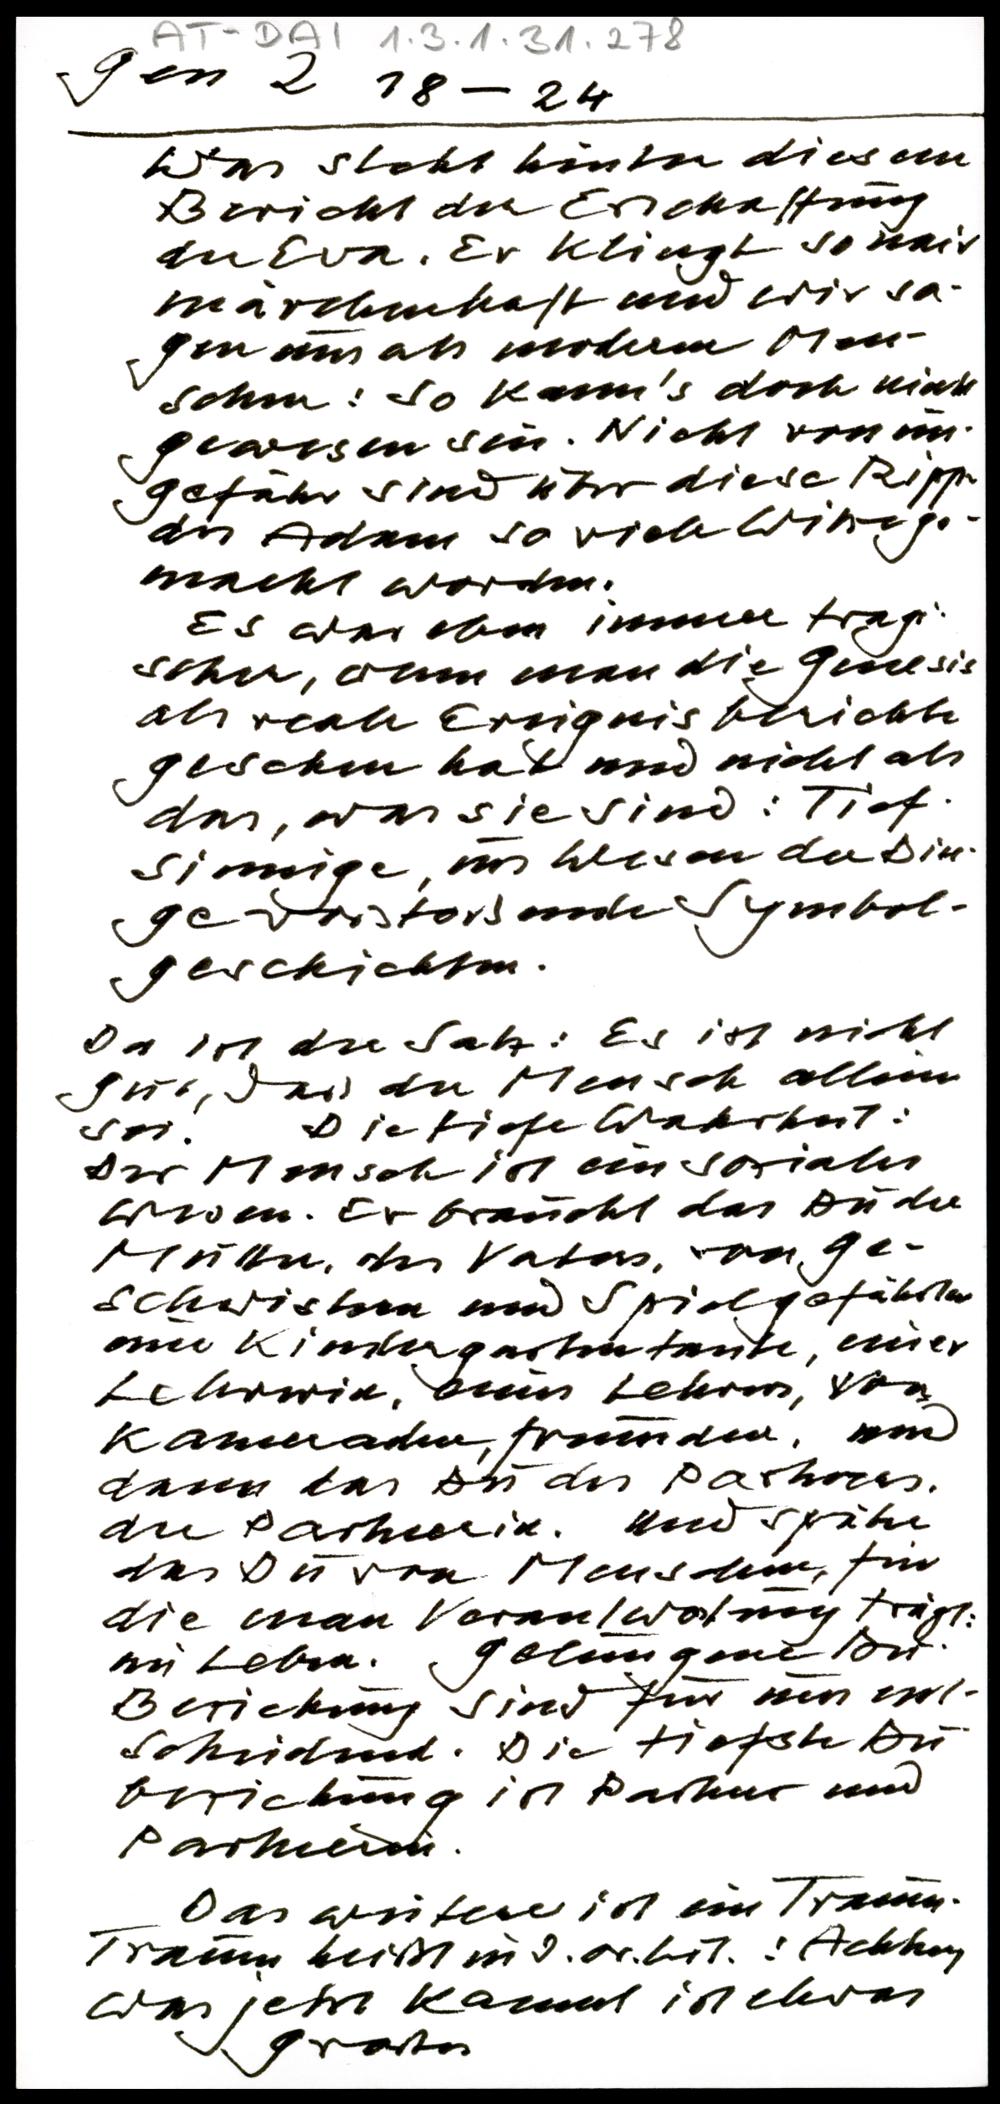 AT-DAI 1.3.1.31.278
Gen 2 18–24
Was steht hinter diesem
Bericht der Erschaffung
der Eva. Er klingt so naiv
märchenhaft und wir sa-
gen uns als moderne Men-
schen: So kann's doch nicht
gewesen sein. Nicht von un-
gefähr sind über diese Rippe
des Adam so viele Witze ge-
macht worden.
Es war eben immer tragi-
scher, wenn man die Genesis
als reale Ereignisberichte
gesehen hat und nicht als
das, was sie sind: Tief-
sinnige, ins Wesen der Din-
ge vorstossende Symbol-
geschichten.
Da ist der Satz: Es ist nicht
gut, dass der Mensch allein
sei. Die tiefe Wahrheit:
Der Mensch ist ein soziales
Wesen. Er braucht das Du der
Mutter, des Vaters, von Ge-
schwistern und Spielgefährten
einer Kindergartentante, einer
Lehrerin, eines Lehrers, von
Kameraden, Freunden, und
dann das Du des Partners,
der Partnerin. Und später
das Du von Menschen, für
die man Verantwortung trägt:
im Leben. Gelungene Du-
Beziehung sind für uns ent-
scheidend. Die tiefste Du
beziehung ist Partner und
Partnerin.
Das weitere ist ein Traum.
Traum heißt in d. : Achtung
was jetzt kommt ist etwas
großes